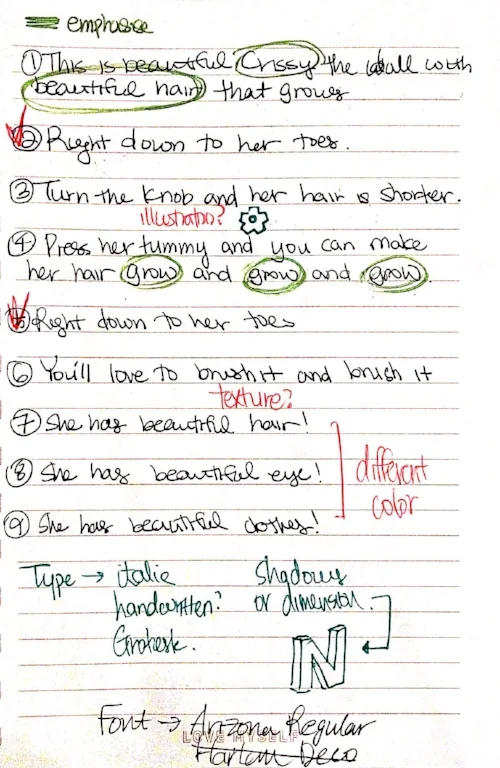 emphasize
① This is beautiful Crissy the doll with
beautiful hair that grows
② Right down to her toes.
③ Turn the knob and her hair is shorter.
illustration?
④ Press her tummy and you can make
her hair grow and grow and grow.
⑤ Right down to her toes
⑥ You'll love to brush it and brush it
texture?
⑦ She has beautiful hair!
⑧ She has beautiful eye!
⑨ She has beautiful clothes!
different
color
Type → italic
handwritten?
Grotesk.
Shadows
or dimension.
N
Font → Arizona Regular
LOVE MYSELF
Harlem Deco